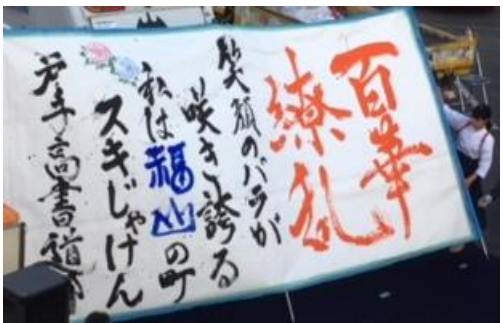 百華
繚乱
笑顔のバラが
咲き誇る
私は福山の町
スキじゃけん
戸手高書道部